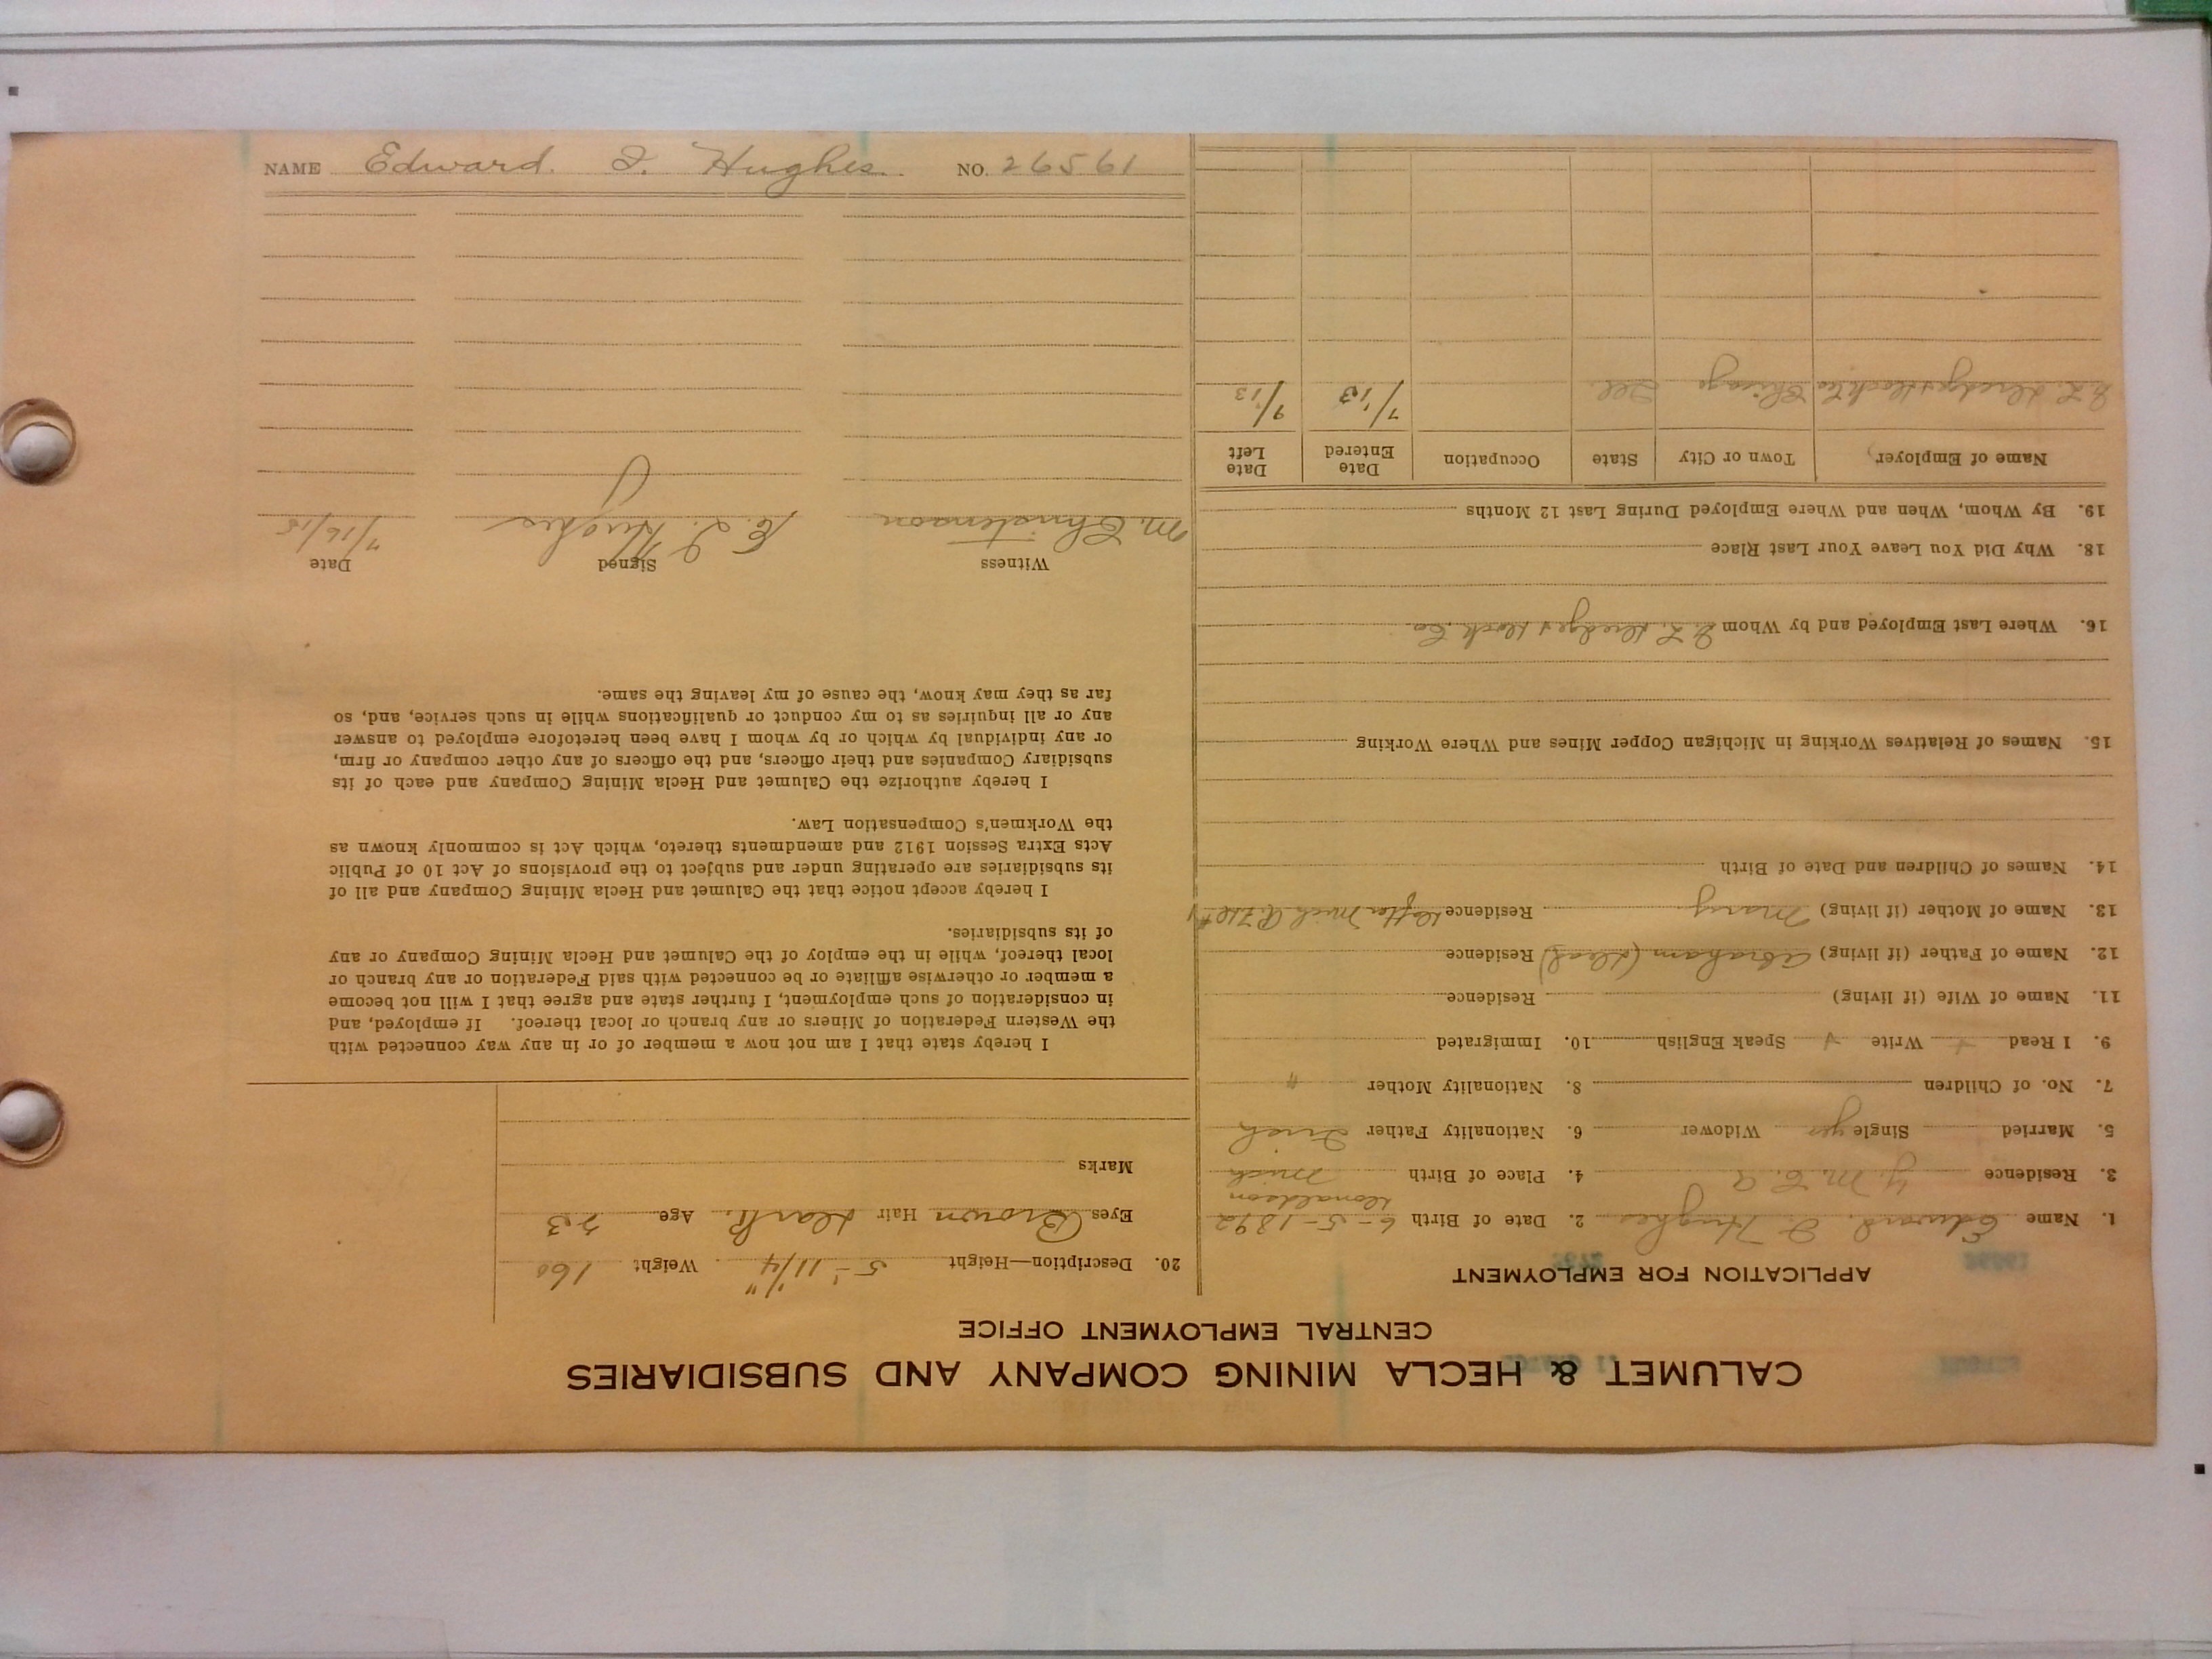 CALUMET & HECLA MINING COMPANY AND SUBSIDIARIES
CENTRAL EMPLOYMENT OFFICE
APPLICATION FOR EMPLOYMENT
1. Name Edward. I Hughes 2. Date of Birth 6-5-1892
3. Residence Y. M. C. A 4. Place of Birth Donaldson Mich
5. Married Single yes Widower 6. Nationality Father Irish
7. No. of Children 8. Nationality Mother "
9. I Read + Write + Speak English 10. Immigrated
11. Name of Wife (if living) Residence
12. Name of Father (if living) Abraham (dead) Residence
13. Name of Mother (if living) Mary Residence Dafter Mich R.F.D #1
14. Names of Children and Date of Birth
15. Names of Relatives Working in Michigan Copper Mines and Where Working
16. Where Last Employed and by Whom G. L. Dredge & Dock Co
18. Why Did You Leave Your Last Place
19. By Whom, When and Where Employed During Last 12 Months
Name of Employer, Town or City State Occupation Date Entered Date Left
G. L. Dredge & Dock Co Chicago Ill. 7/13 9/13
20. Description—Height 5'-11 1/4" Weight 160
Eyes Brown Hair Dark. Age 23
Marks
I hereby state that I am not now a member of or in any way connected with
the Western Federation of Miners or any branch or local thereof. If employed, and
in consideration of such employment, I further state and agree that I will not become
a member or otherwise affiliate or be connected with said Federation or any branch or
local thereof, while in the employ of the Calumet and Hecla Mining Company or any
of its subsidiaries.
I hereby accept notice that the Calumet and Hecla Mining Company and all of
its subsidiaries are operating under and subject to the provisions of Act 10 of Public
Acts Extra Session 1912 and amendments thereto, which Act is commonly known as
the Workmen's Compensation Law.
I hereby authorize the Calumet and Hecla Mining Company and each of its
subsidiary Companies and their officers, and the officers of any other company or firm,
or any individual by which or by whom I have been heretofore employed to answer
any or all inquiries as to my conduct or qualifications while in such service, and, so
far as they may know, the cause of my leaving the same.
Witness Signed Date
M. Christenson E. I. Hughes 7/16/15
NAME Edward. I. Hughes. NO. 26561